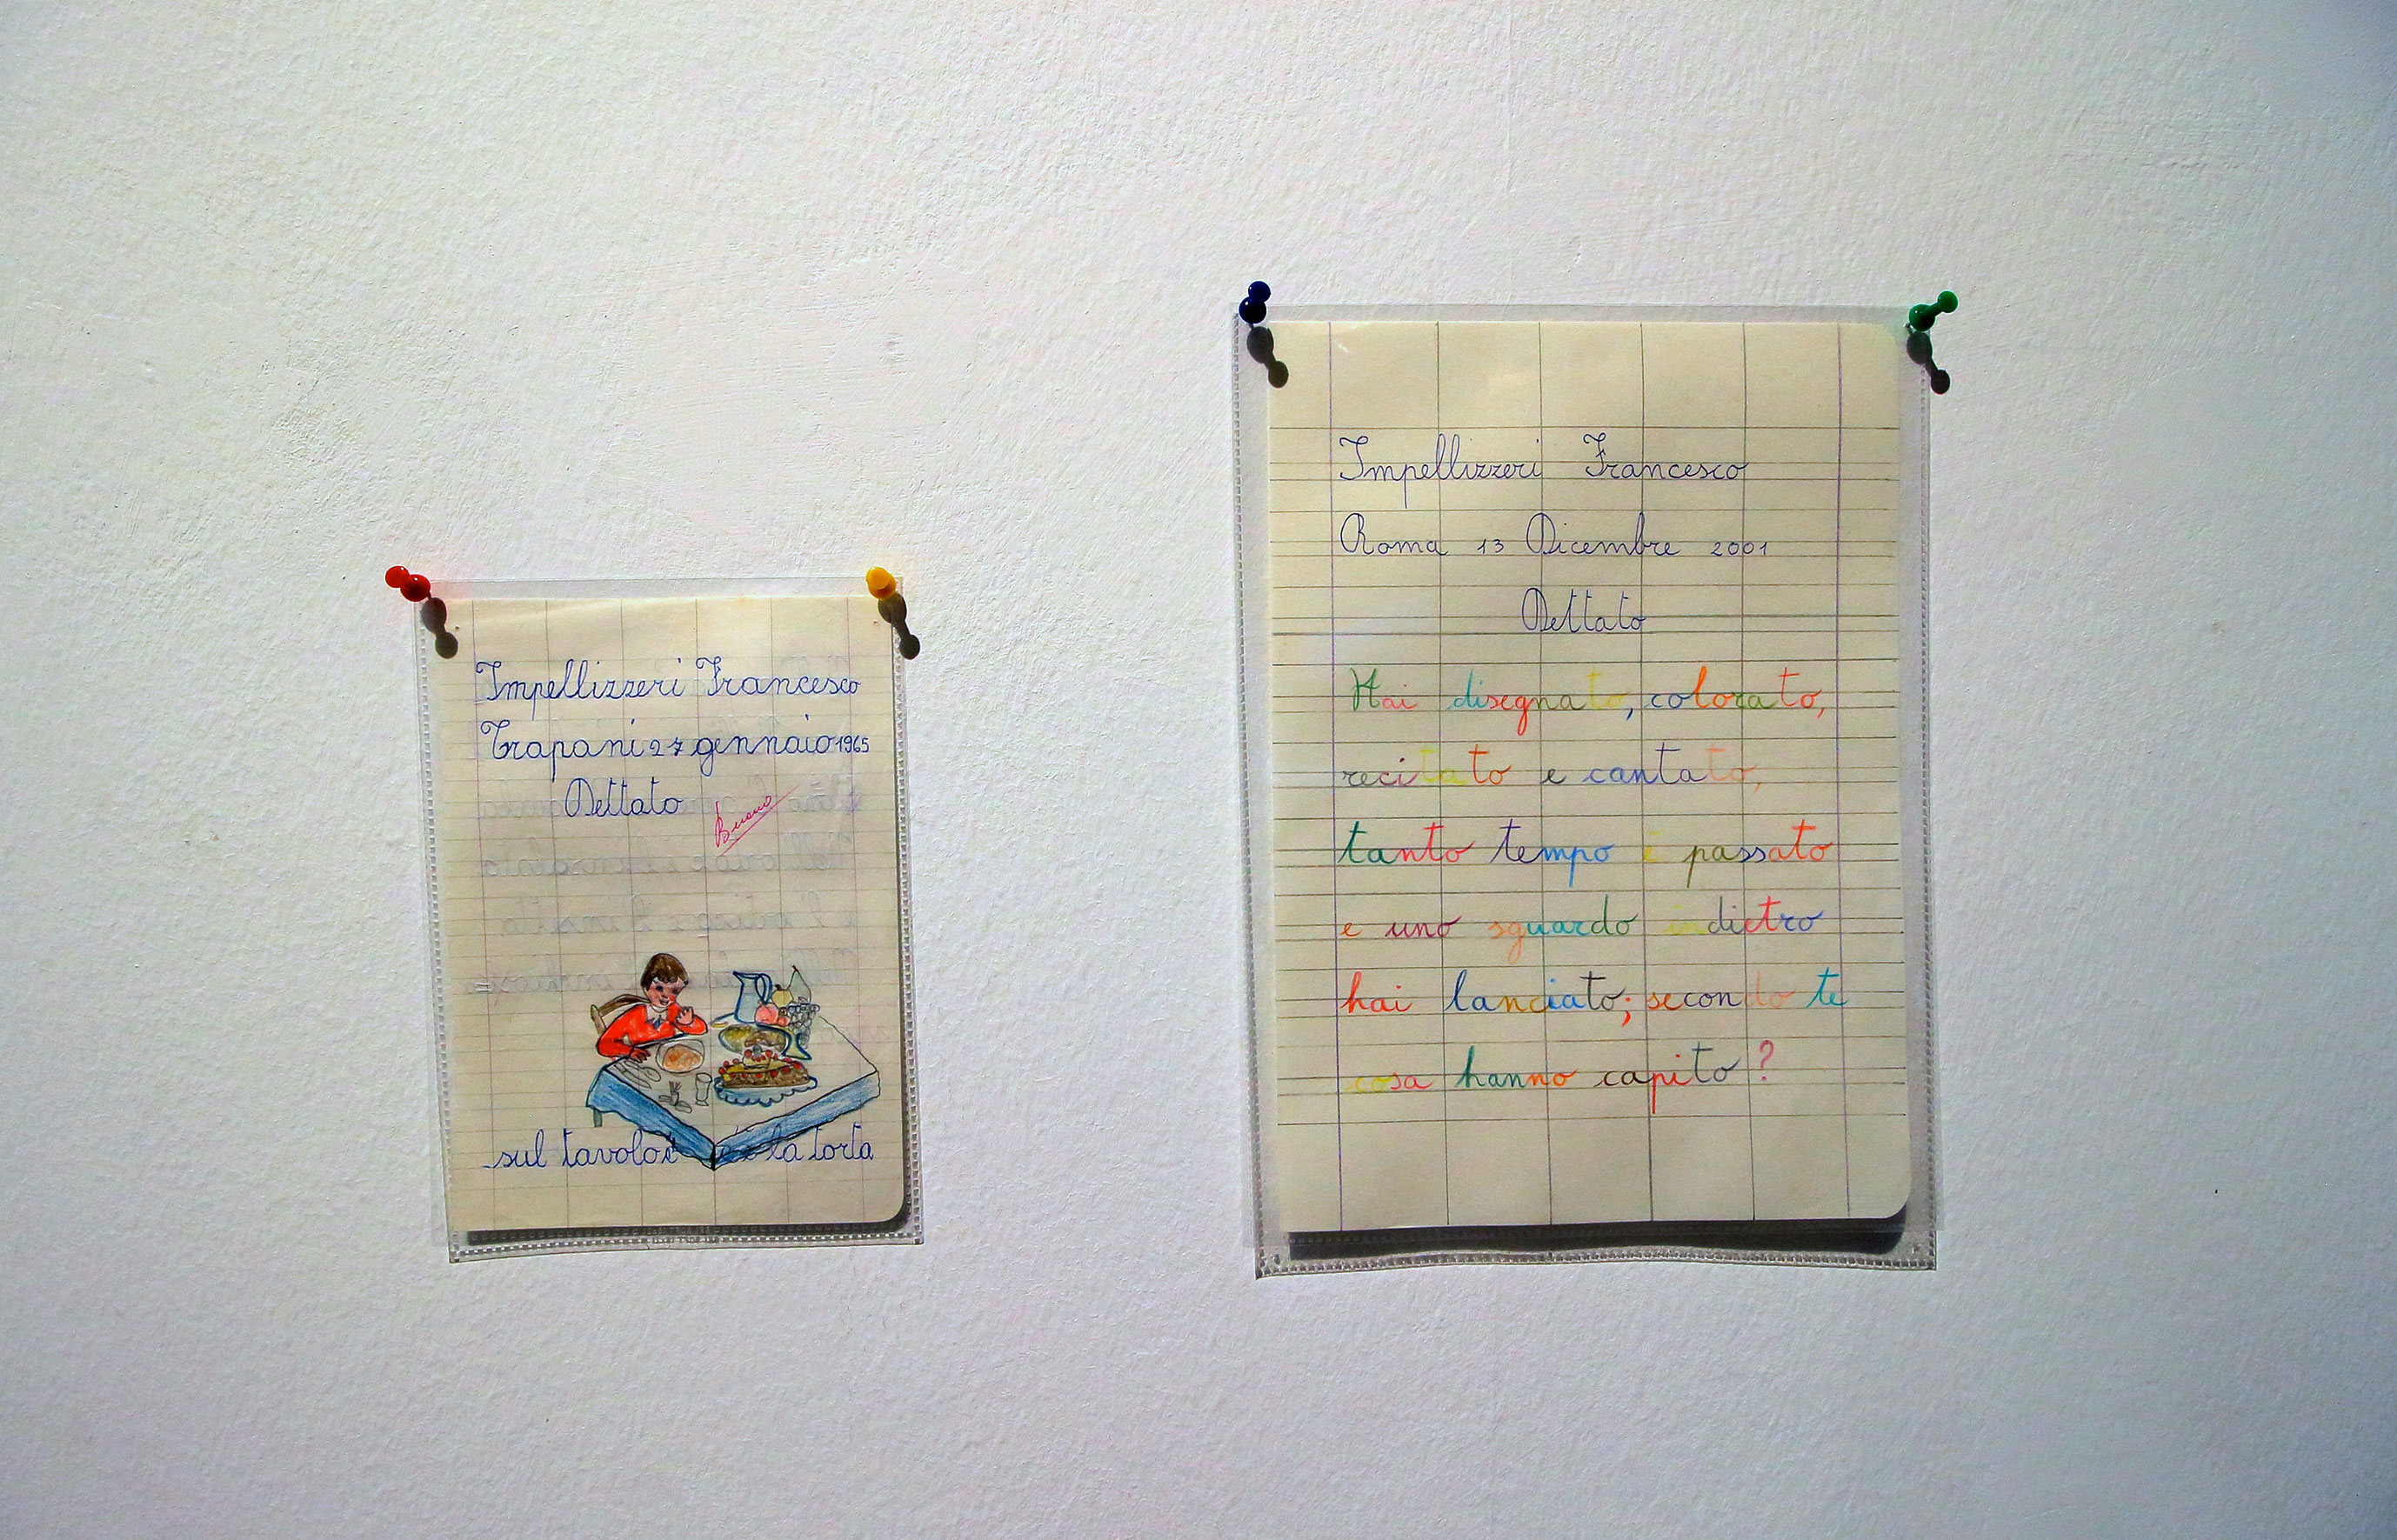 Impellizzeri Francesco
Trapani 27 gennaio 1965
Dettato
Buono
sul tavolo è la torta
Impellizzeri Francesco
Roma 13 Dicembre 2001
Dettato
Hai disegnato, colorato,
recitato e cantato,
tanto tempo è passato
e uno sguardo indietro
hai lanciato; secondo te
cosa hanno capito?